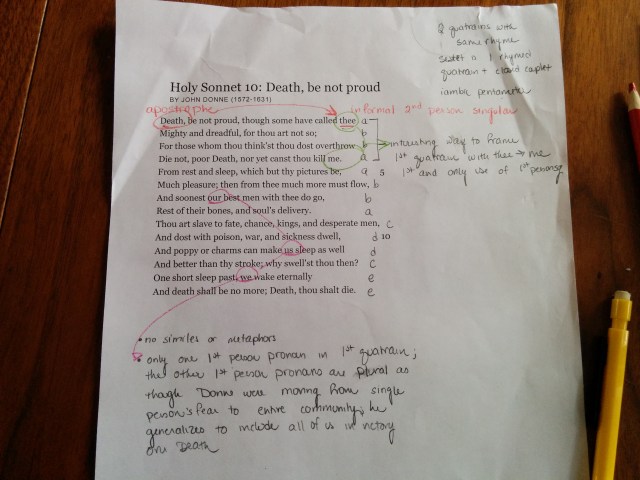 2 quatrains with
same rhyme
sestet a 1 rhymed
quatrain + closed couplet
iambic pentameter
Holy Sonnet 10: Death, be not proud
BY JOHN DONNE (1572-1631)
apostrophe
informal 2nd person singular
Death, be not proud, though some have called thee a
Mighty and dreadful, for thou art not so; b
For those whom thou think'st thou dost overthrow b
interesting way to frame
Die not, poor Death, nor yet canst thou kill me. a
1st quatrain with thee → me
From rest and sleep, which but thy pictures be, a 5
1st and only use of 1st person sg
Much pleasure; then from thee much more must flow, b
And soonest our best men with thee do go, b
Rest of their bones, and soul's delivery. a
Thou art slave to fate, chance, kings, and desperate men, c
And dost with poison, war, and sickness dwell, d 10
And poppy or charms can make us sleep as well d
And better than thy stroke; why swell'st thou then? c
One short sleep past, we wake eternally e
And death shall be no more; Death, thou shalt die. e
• no similes or metaphors
• only one 1st person pronoun in 1st quatrain;
the other 1st person pronouns are plural as
though Donne were moving from single
person's fear to entire community; he
generalizes to include all of us in victory
over Death